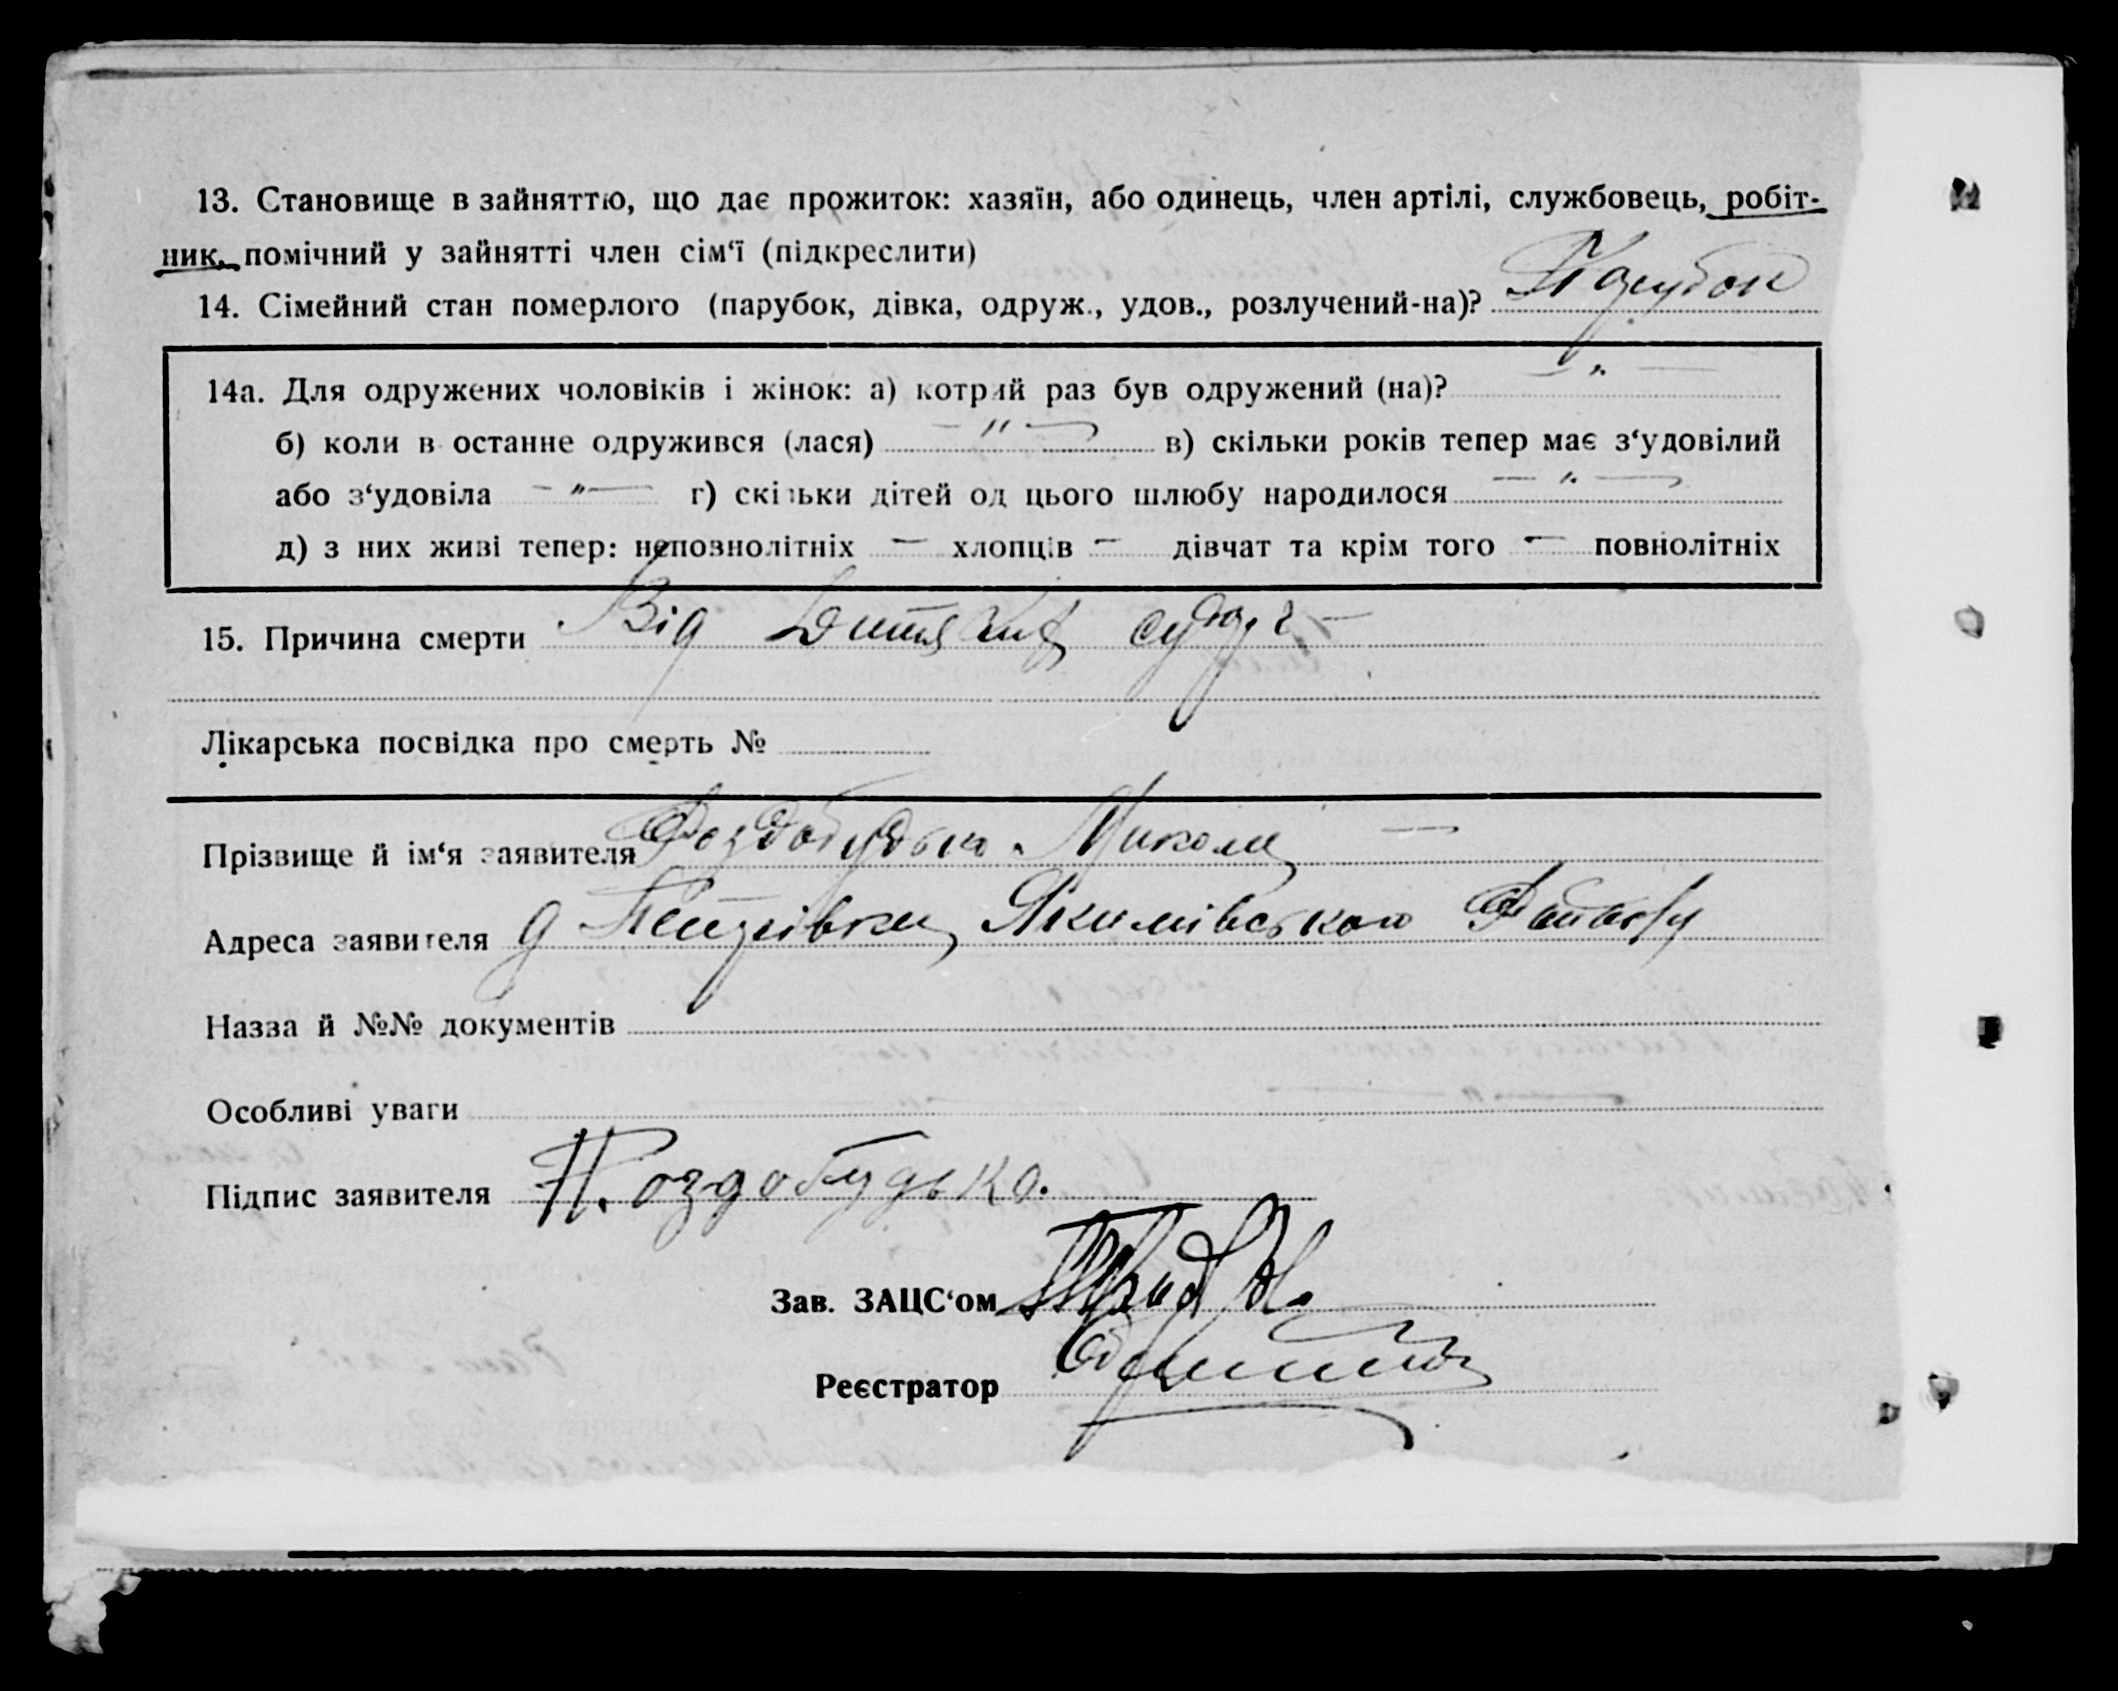 13. Становище в зайняттю, що дає прожиток: хазяїн, або одинець, член артілі, службовець, робіт-
ник, помічний у зайнятті член сім‘ї (підкреслити)
14. Сімейний стан померлого (парубок, дівка, одруж., удов., розлучений-на)? Парубок
14а. Для одружених чоловіків і жінок: а) котрий раз був одружений (на)? — " —
б) коли в останне одружився (лася) — " — в) скільки років тепер має з‘удовілий
або з‘удовіла — " — г) скільки дітей од цього шлюбу народилося — " —
д) з них живі тепер: неповнолітніх — хлопців — дівчат та крім того — повнолітніх
15. Причина смерти Від Дитячих судог —
Лікарська посвідка про смерть №
Прізвище й ім‘я заявителя Роздобудько Микола —
Адреса заявителя Якимівського Району
Назва й №№ документів
Особливі уваги
Підпис заявителя Н. Роздобудько.
Зав. ЗАЦС‘ом
Реєстратор